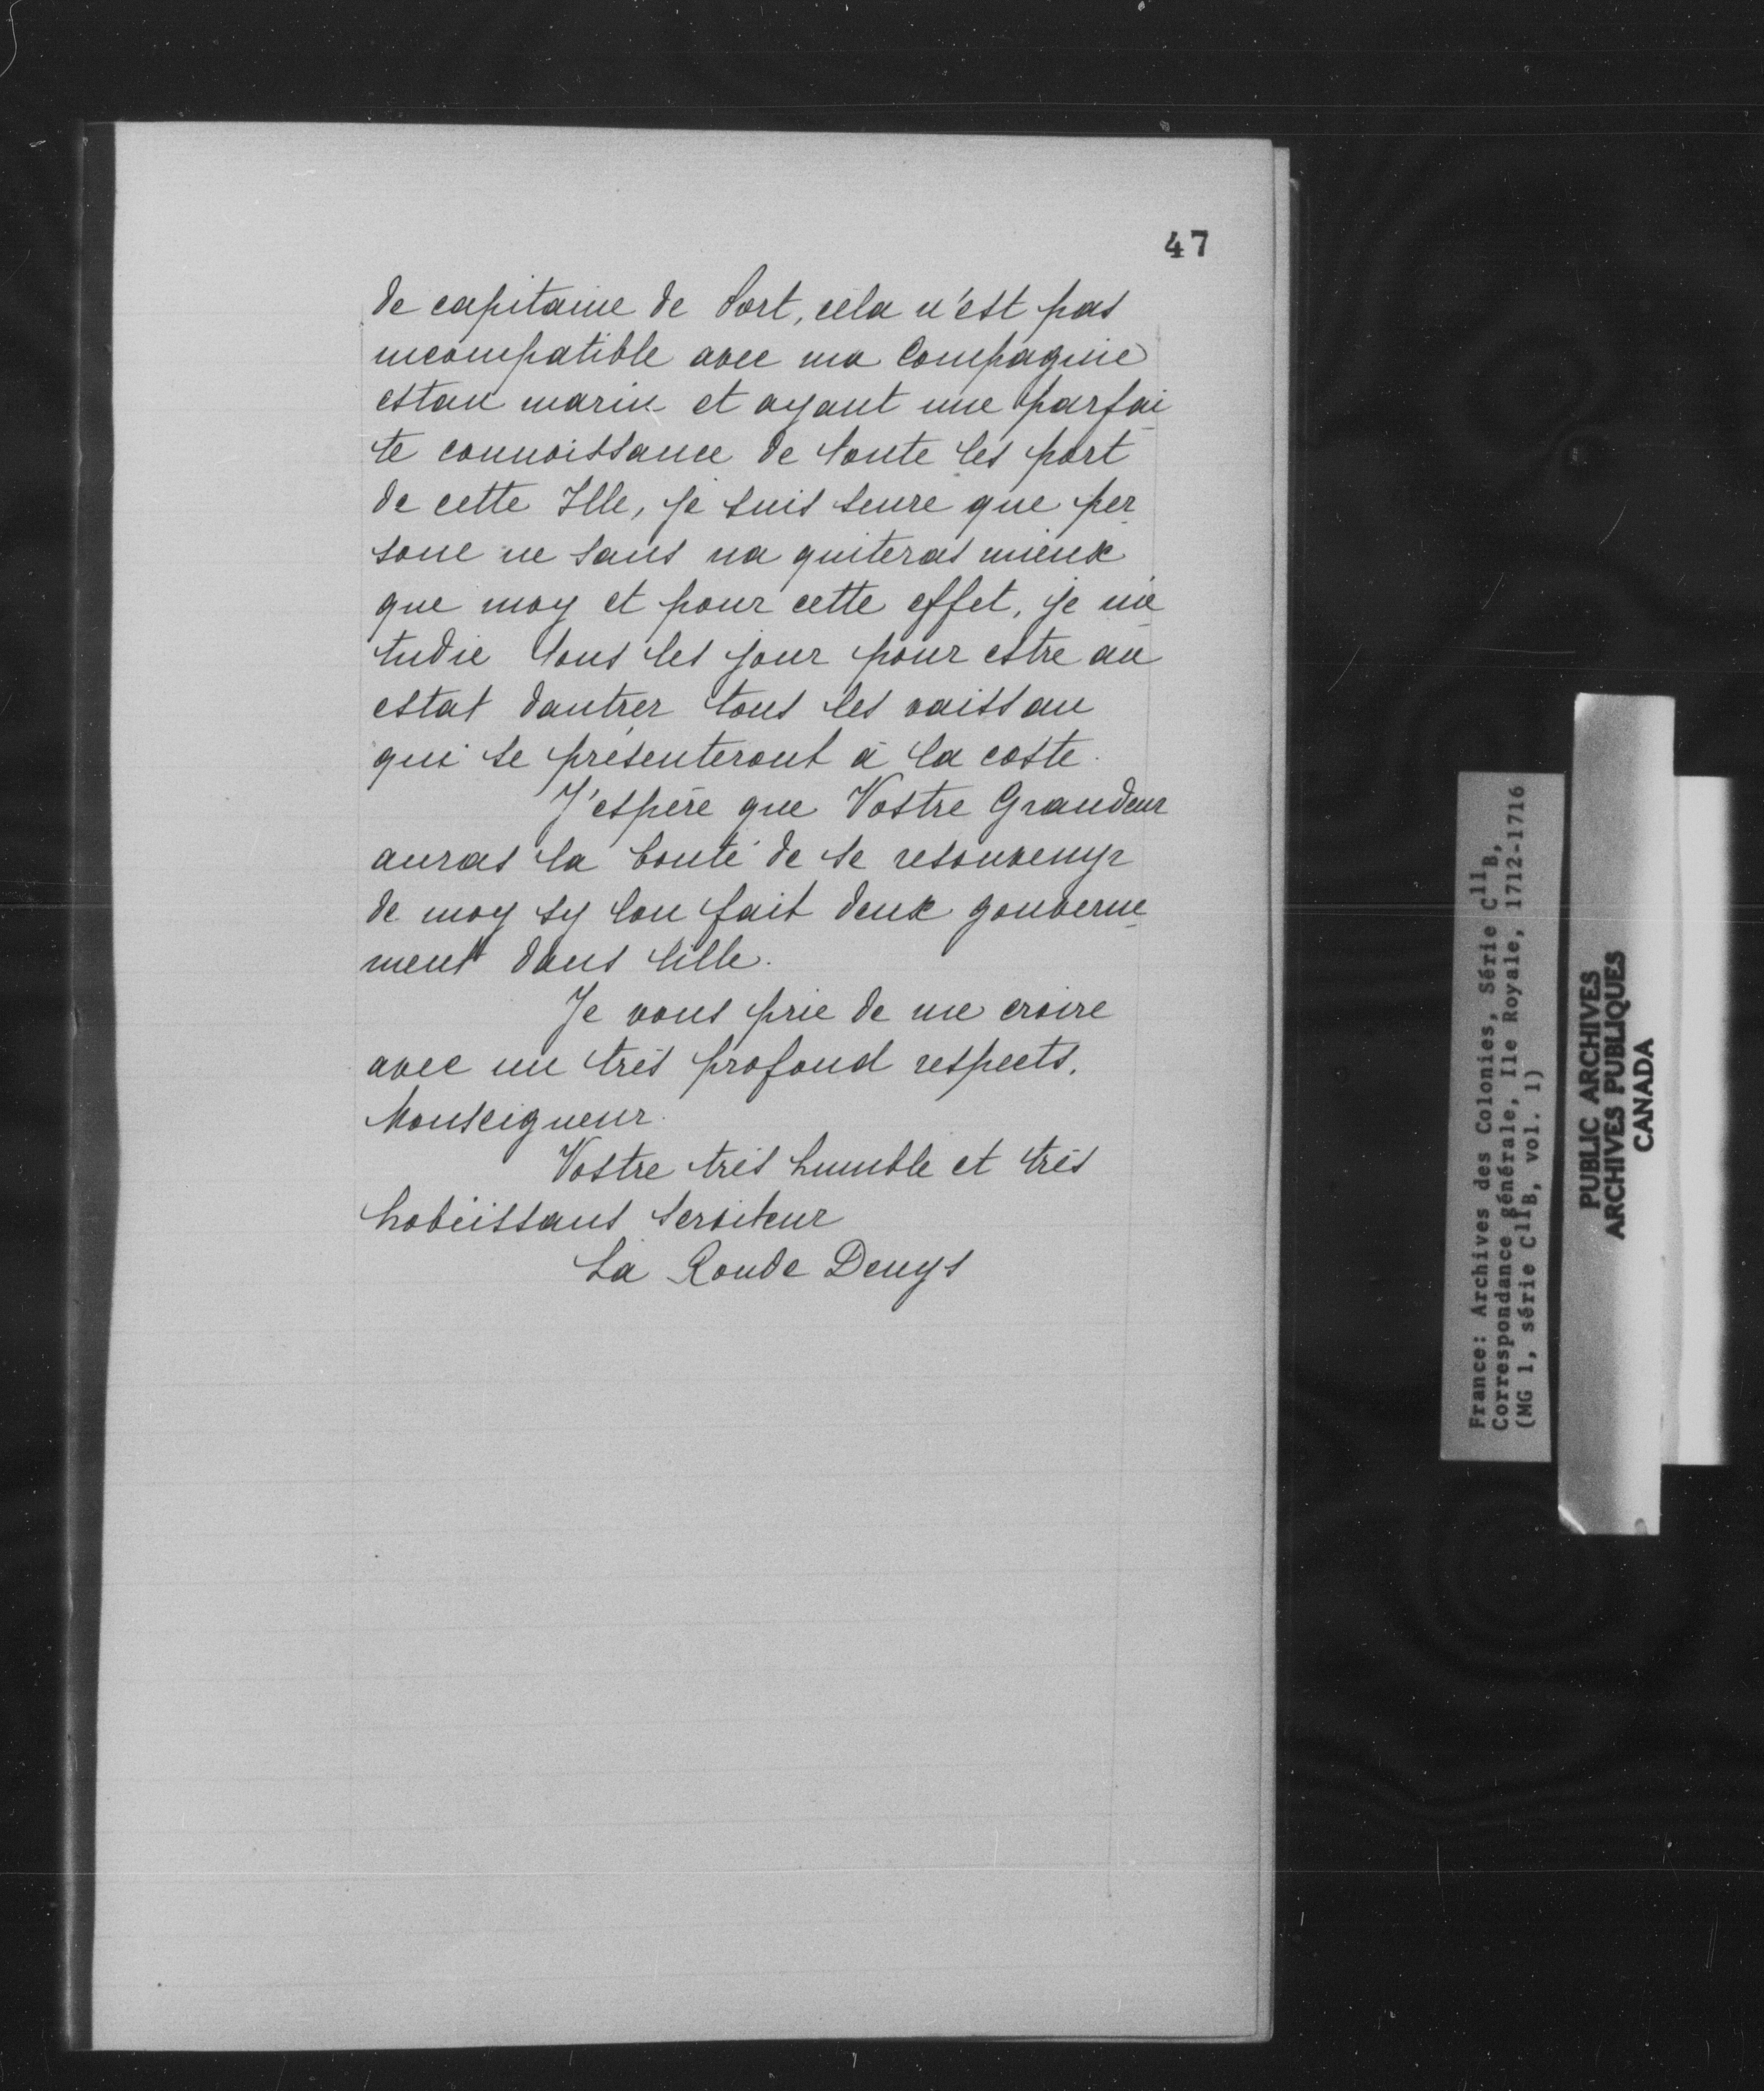 47
de capitaine de Port, cela n'est pas
incompatible avec ma Compagnie
estan marin et ayant une parfai
te connoissance de toute les port
de cette Ille, je suis seure que per
sone ne sans na quiteras mieux
que moy et pour cette effet, je mé
tudie tous les jour pour estre au
estat dantrer tous les vaissau
qui se présenteront à la coste.
J'espère que Vostre Grandeur
auras la bonté de se resouvenyr
de moy sy lon fait deux gouverne
ment dans lille.
Je vous prie de me croire
avec un très profond respects,
Monseigneur.
Vostre très humble et très
hobéissans serviteur
La Ronde Denys
France: Archives des Colonies, Série C11B,
Correspondance générale, Ile Royale, 1712-1716
(MG 1, série C11B, vol. 1)
PUBLIC ARCHIVES
ARCHIVES PUBLIQUES
CANADA